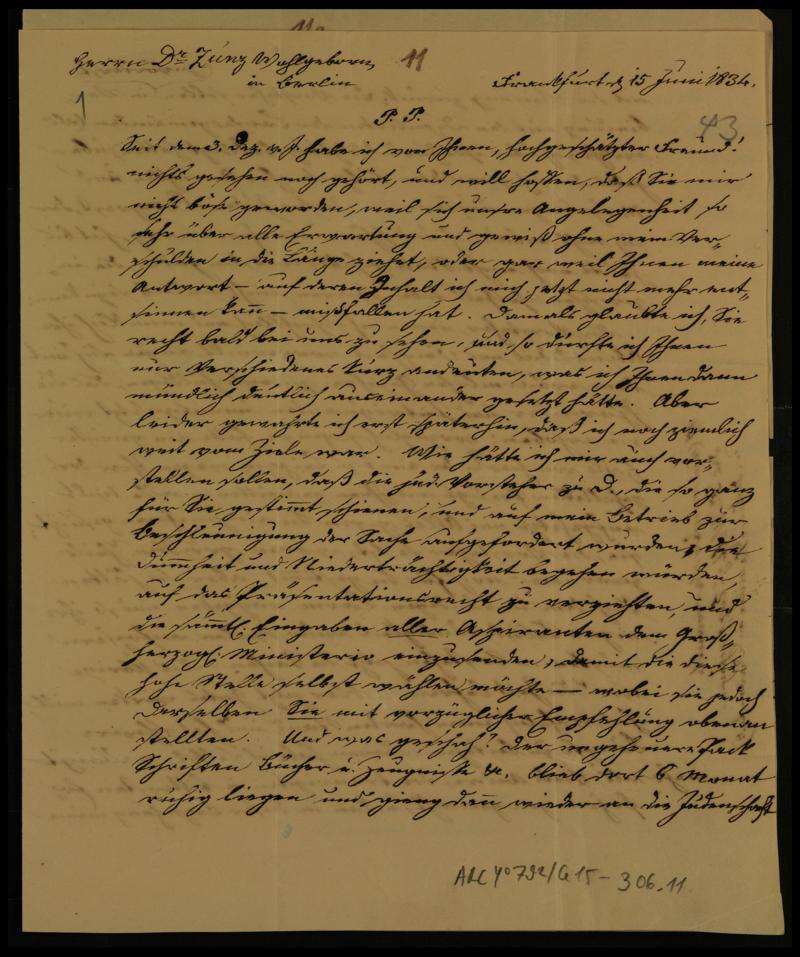 11
Herrn Dr Zunz Wohlgeborn,
in Berlin
Frankfurt d 15 Juni 1834.
1
P. P.
43
Seit dem 3. Dez. v. J. habe ich von Ihnen, hochgeschätzter Freund!
nichts gesehen noch gehört, und will hoffen, daß Sie mir
nicht böse geworden, weil sich unsre Angelegenheit so
sehr über alle Erwartung und gewiß ohne mein Ver-
schulden in die Länge ziehet, oder gar weil Ihnen meine
Antwort – auf deren Inhalt ich mich jetzt nicht mehr ent-
sinnen kann – mißfallen hat. Damals glaubte ich, Sie
recht bald bei uns zu sehen, und so durfte ich Ihnen
nur Verschiedenes kurz andeuten, was ich Ihnen dann
mündlich deutlich auseinander gesetzt hätte. Aber
leider gewahrte ich erst späterhin, daß ich noch ziemlich
weit vom Ziele war. Wie hätte ich mir auch vor-
stellen sollen, daß die jüd. Vorsteher zu D., die so ganz
für Sie gestimmt schienen, und auf mein Betrieb zur
Beschleunigung der Sache aufgefordert wurden, die
Dummheit und Niederträchtigkeit begehen würden,
auf das Präsentationsrecht zu verzichten, und
die sämtl. Eingaben aller Aspiranten dem Groß-
herzogl. Ministerio einzusenden, damit die diese
hohe Stelle selbst wählen möchte – wobei sie jedoch
derselben Sie mit vorzüglicher Empfehlung obenan
stellten. Und was geschah? Der ungeheuere Pack
Schriften Bücher u. Zeugnisse &c. blieb dort 6 Monat
ruhig liegen und gieng dann wieder an die Judenschaft
ARC 4° 792/G15-306.11